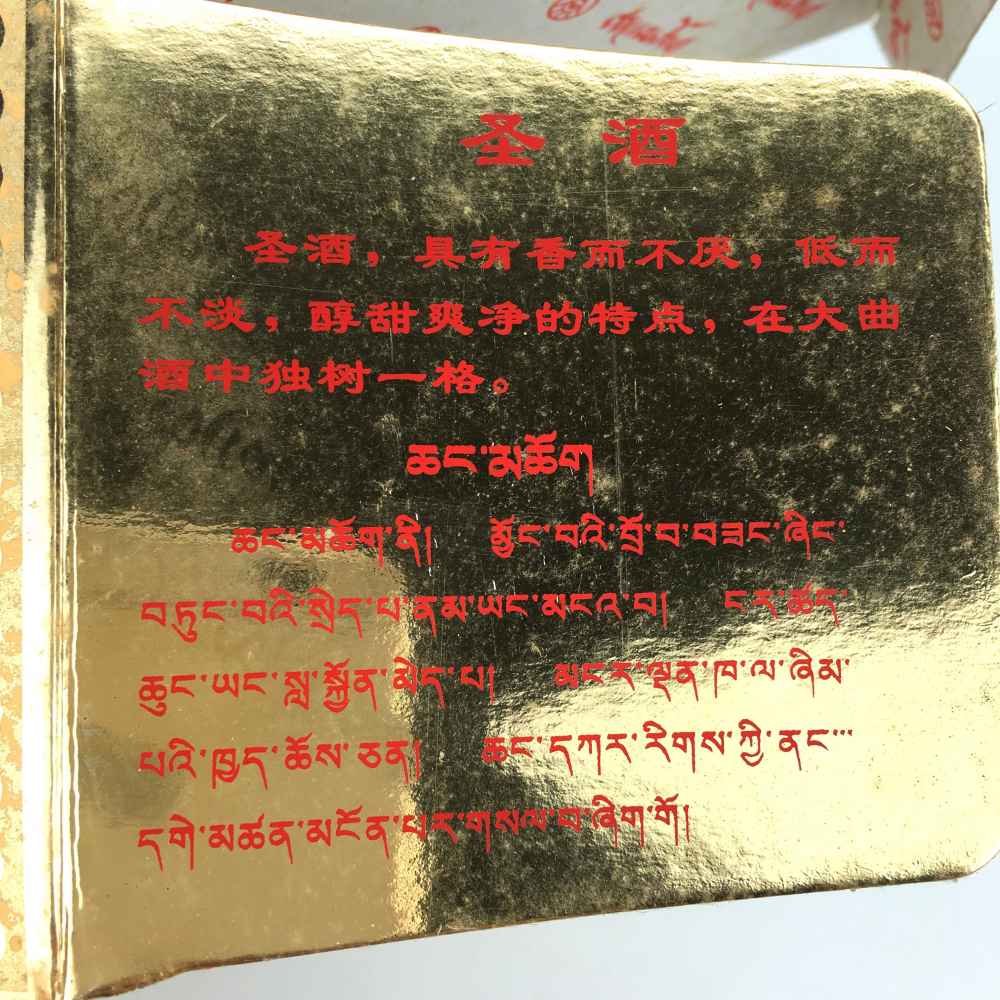 圣酒
圣酒，具有香而不厌，低而
不淡，醇甜爽净的特点，在大曲
酒中独树一格。
ཆང་མཆོག
ཆང་མཆོག་ནི། མྱོང་བའི་བྲོ་བ་བཟང་ཞིང་
བཏུང་བའི་སྲེད་པ་ནམ་ཡང་མངའ་བ། ངར་ཚད་
ཆུང་ཡང་སླ་སྐྱོན་མེད་པ། མངར་ལྡན་ཁ་ལ་ཞིམ་
པའི་ཁྱད་ཆོས་ཅན། ཆང་དཀར་རིགས་ཀྱི་ནང་་་
དགེ་མཚན་མངོན་པར་གསལ་བ་ཞིག་གོ།